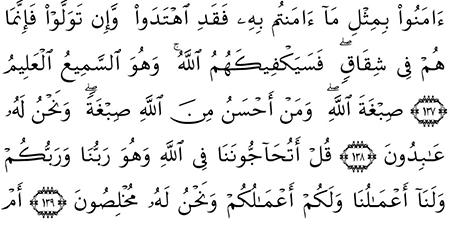 ءَامَنُوا۟ بِمِثْلِ مَآ ءَامَنتُم بِهِۦ فَقَدِ ٱهْتَدَوا۟ ۖ وَّإِن تَوَلَّوْا۟ فَإِنَّمَا
هُمْ فِى شِقَاقٍ ۖ فَسَيَكْفِيكَهُمُ ٱللَّهُ ۚ وَهُوَ ٱلسَّمِيعُ ٱلْعَلِيمُ
﴿١٣٧﴾ صِبْغَةَ ٱللَّهِ ۖ وَمَنْ أَحْسَنُ مِنَ ٱللَّهِ صِبْغَةً ۖ وَنَحْنُ لَهُۥ
عَـٰبِدُونَ ﴿١٣٨﴾ قُلْ أَتُحَآجُّونَنَا فِى ٱللَّهِ وَهُوَ رَبُّنَا وَرَبُّكُمْ
وَلَنَآ أَعْمَـٰلُنَا وَلَكُمْ أَعْمَـٰلُكُمْ وَنَحْنُ لَهُۥ مُخْلِصُونَ ﴿١٣٩﴾ أَمْ